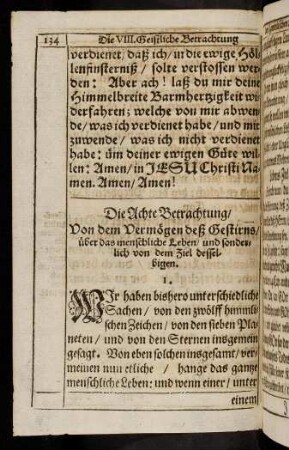 134 Die VIII. Geistliche Betrachtung
verdienet, daß ich/ in die ewige Höl-
lenfinsterniß/ solte verstossen wer-
den: Aber ach! laß du mir deine
Himmelbreite Barmhertzigkeit wi-
derfahren; welche von mir abwen-
de/ was ich verdienet habe/ und mir
zuwende/ was ich nicht verdienet
habe: üm deiner ewigen Güte wil-
len: Amen/ in JESU Christi Na-
men. Amen/ Amen!
Die Achte Betrachtung/
Von dem Vermögen deß Gestirns/
über das menschliche Leben/ und sonder-
lich von dem Ziel dessel-
bigen.
1.
WJr haben bishero unterschiedliche
Sachen/ von den zwölff himmli-
schen Zeichen/ von den sieben Pla-
neten/ und von den Sternen insgemein
gesagt. Von eben solchen insgesamt/ ver-
meinen nun etliche/ hange das gantze
menschliche Leben: und wenn einer/ unter
einem